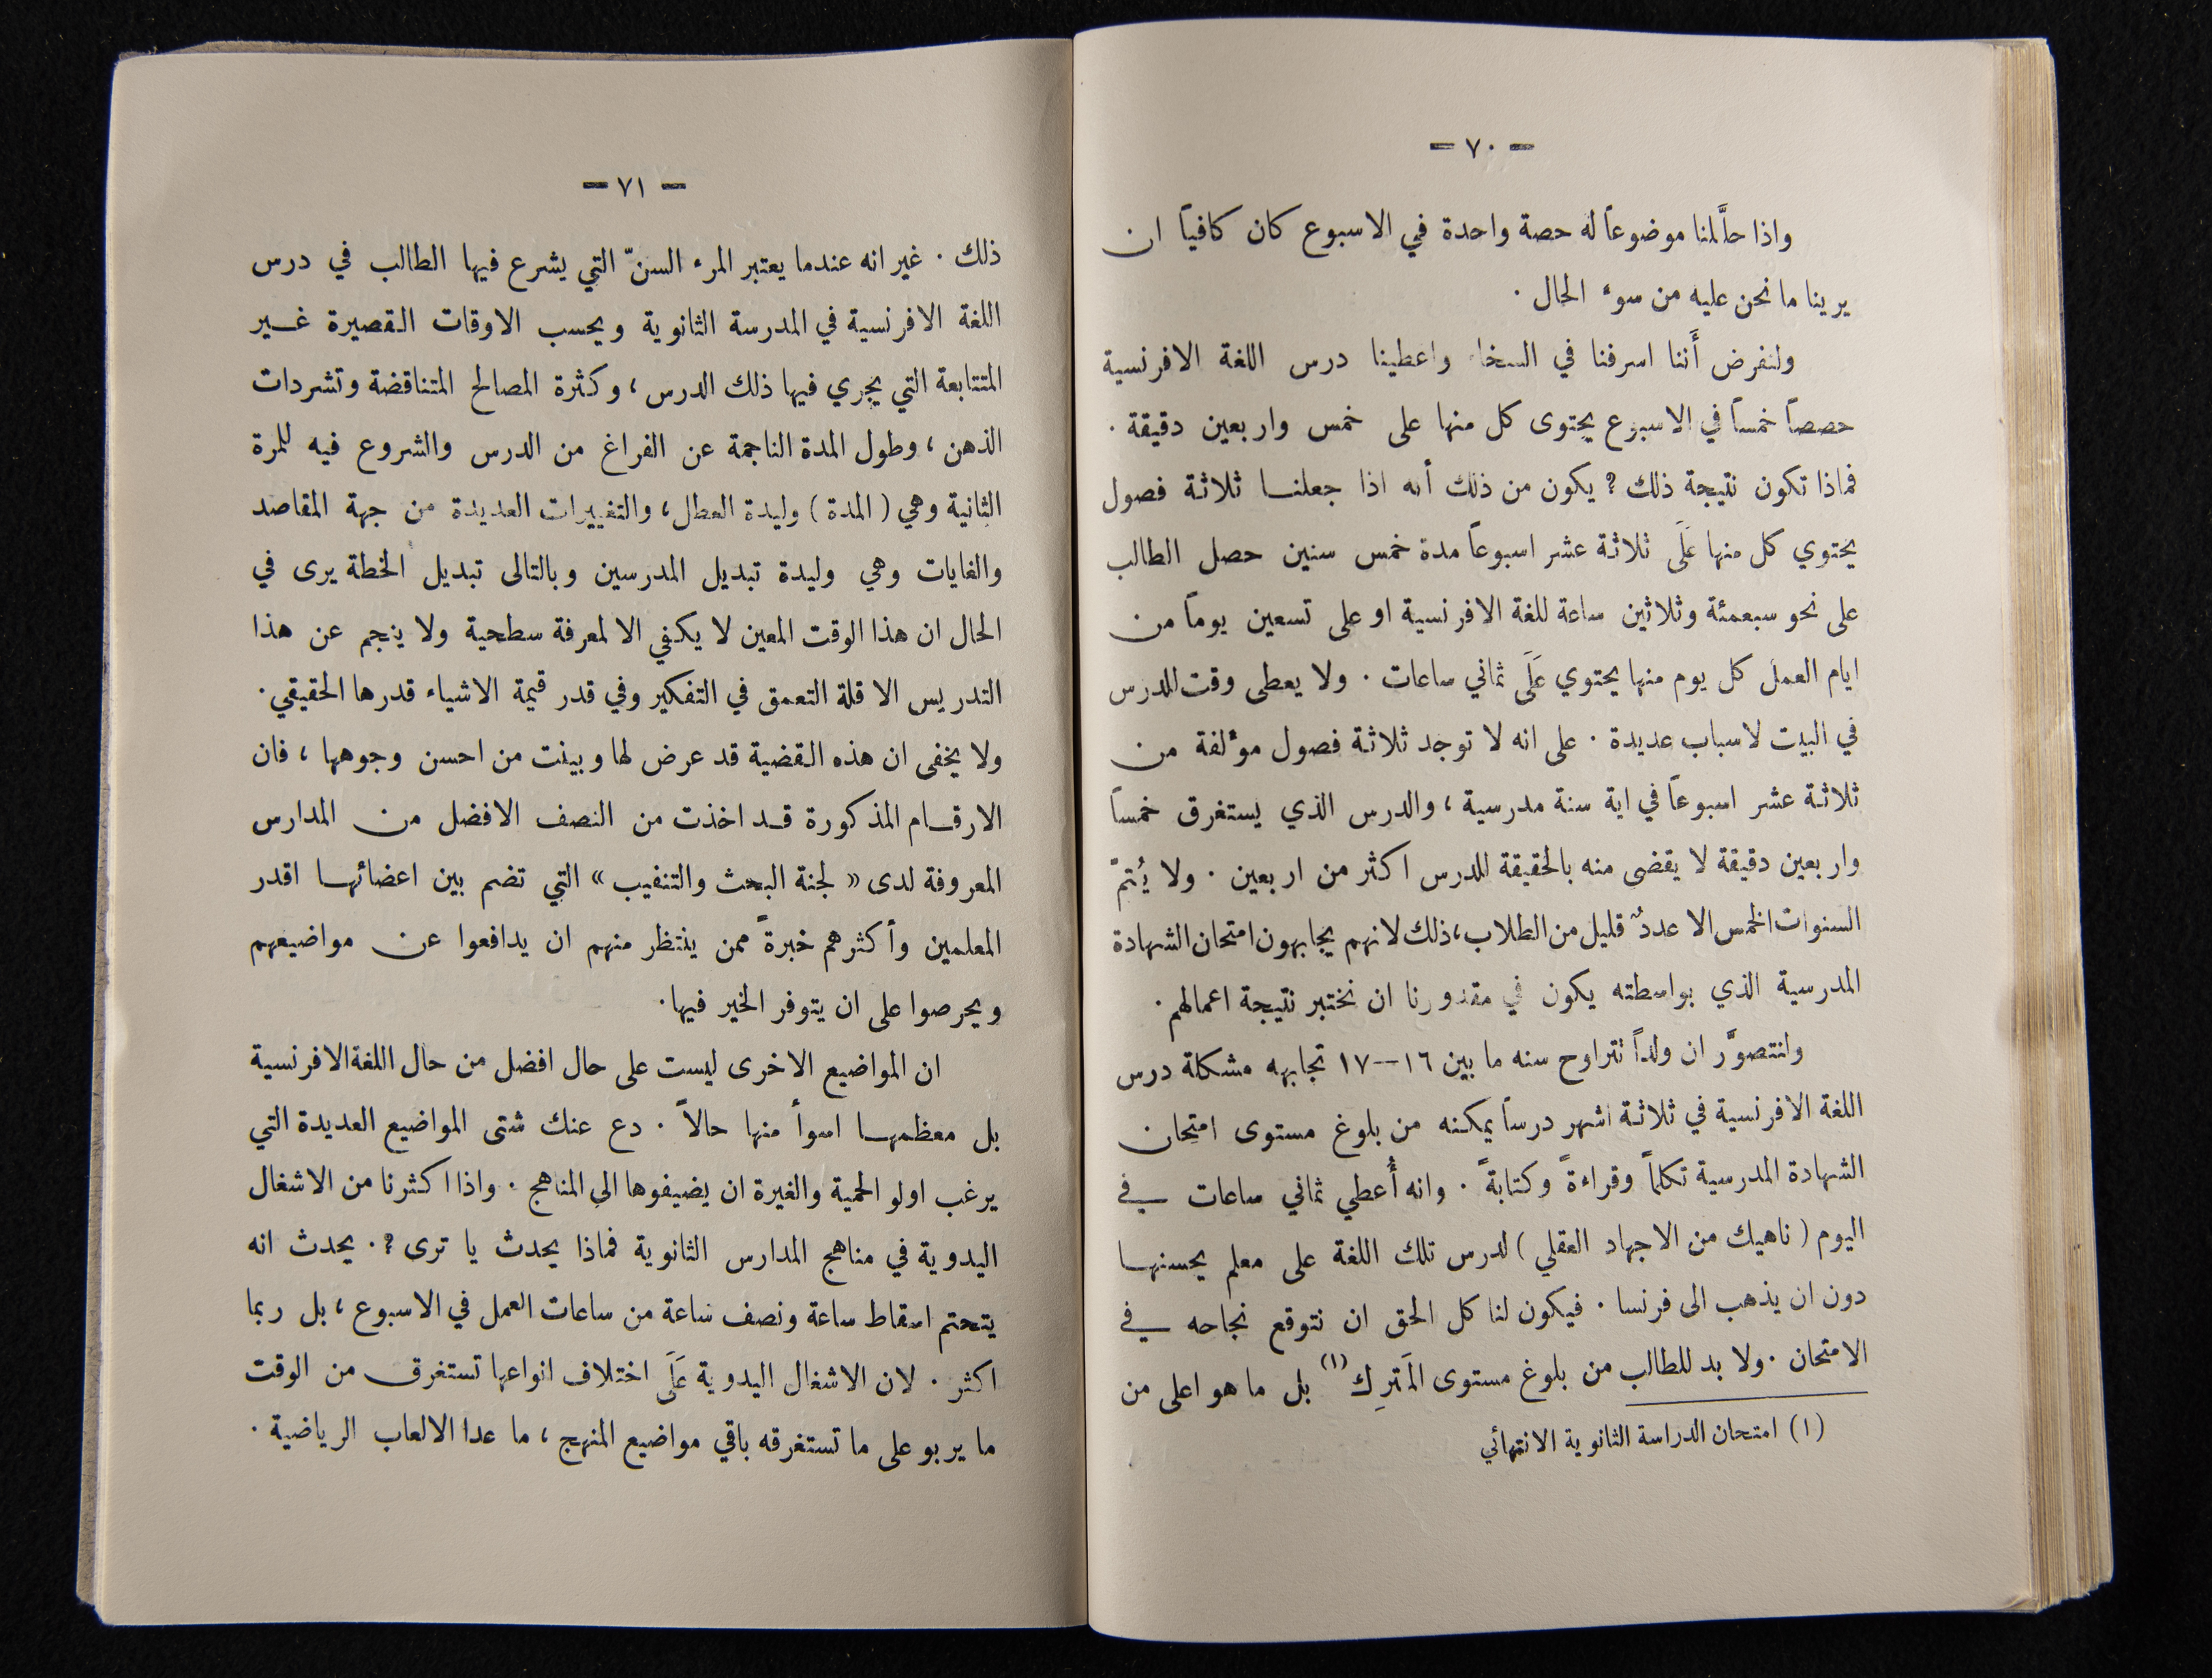 — ٧٠ —
واذا حلَّلنا موضوعاً له حصة واحدة في الاسبوع كان كافياً ان
يرينا ما نحن عليه من سوء الحال .
ولنفرض أَننا اسرفنا في السخاء واعطينا درس اللغة الافرنسية
حصصاً خمساً في الاسبوع يحتوى كل منها على خمس واربعين دقيقة .
فماذا تكون نتيجة ذلك ؟ يكون من ذلك أنه اذا جعلنا ثلاثة فصول
يحتوي كل منها عَلَى ثلاثة عشر اسبوعاً مدة خمس سنين حصل الطالب
على نحو سبعمئة وثلاثين ساعة للغة الافرنسية او على تسعين يوماً من
ايام العمل كل يوم منها يحتوي عَلَى ثماني ساعات . ولا يعطى وقت للدرس
في البيت لاسباب عديدة . على انه لا توجد ثلاثة فصول مؤلفة من
ثلاثة عشر اسبوعاً في اية سنة مدرسية ، والدرس الذي يستغرق خمساً
واربعين دقيقة لا يقضى منه بالحقيقة للدرس اكثر من اربعين . ولا يُتمّ
السنوات الخمس الا عددٌ قليل من الطلاب ، ذلك لانهم يجابهون امتحان الشهادة
المدرسية الذي بواسطته يكون في مقدورنا ان نختبر نتيجة اعمالهم .
ولنتصوَّر ان ولداً تتراوح سنه ما بين ١٦—١٧ تجابهه مشكلة درس
اللغة الافرنسية في ثلاثة اشهر درساً يمكنه من بلوغ مستوى امتحان
الشهادة المدرسية تكلماً وقراءةً وكتابةً . وانه أُعطي ثماني ساعات في
اليوم ( ناهيك من الاجهاد العقلي ) لدرس تلك اللغة على معلم يحسنها
دون ان يذهب الى فرنسا . فيكون لنا كل الحق ان نتوقع نجاحه في
الامتحان . ولا بد للطالب من بلوغ مستوى المَترِك (١) بل ما هو اعلى من
(١) امتحان الدراسة الثانوية الانتهائي
— ٧١ —
ذلك . غير انه عندما يعتبر المرء السنّ التي يشرع فيها الطالب في درس
اللغة الافرنسية في المدرسة الثانوية ويحسب الاوقات القصيرة غير
المتتابعة التي يجري فيها ذلك الدرس ، وكثرة المصالح المتناقضة وتشردات
الذهن ، وطول المدة الناجمة عن الفراغ من الدرس والشروع فيه للمرة
الثانية وهي ( المدة ) وليدة العطل ، والتغييرات العديدة من جهة المقاصد
والغايات وهي وليدة تبديل المدرسين وبالتالى تبديل الخطة يرى في
الحال ان هذا الوقت المعين لا يكفي الا لمعرفة سطحية ولا ينجم عن هذا
التدريس الا قلة التعمق في التفكير وفي قدر قيمة الاشياء قدرها الحقيقي .
ولا يخفى ان هذه القضية قد عرض لها وبينت من احسن وجوهها ، فان
الارقام المذكورة قد اخذت من النصف الافضل من المدارس
المعروفة لدى « لجنة البحث والتنقيب » التي تضم بين اعضائها اقدر
المعلمين وأكثرهم خبرةً ممن ينتظر منهم ان يدافعوا عن مواضيعهم
ويحرصوا على ان يتوفر الخير فيها .
ان المواضيع الاخرى ليست على حال افضل من حال اللغة الافرنسية
بل معظمها اسوأ منها حالاً . دع عنك شتى المواضيع العديدة التي
يرغب اولو الحمية والغيرة ان يضيفوها الى المناهج . واذا اكثرنا من الاشغال
اليدوية في مناهج المدارس الثانوية فماذا يحدث يا ترى ؟ . يحدث انه
يتحتم اسقاط ساعة ونصف ساعة من ساعات العمل في الاسبوع ، بل ربما
اكثر . لان الاشغال اليدوية عَلَى اختلاف انواعها تستغرق من الوقت
ما يربو على ما تستغرقه باقي مواضيع المنهج ، ما عدا الالعاب الرياضية .